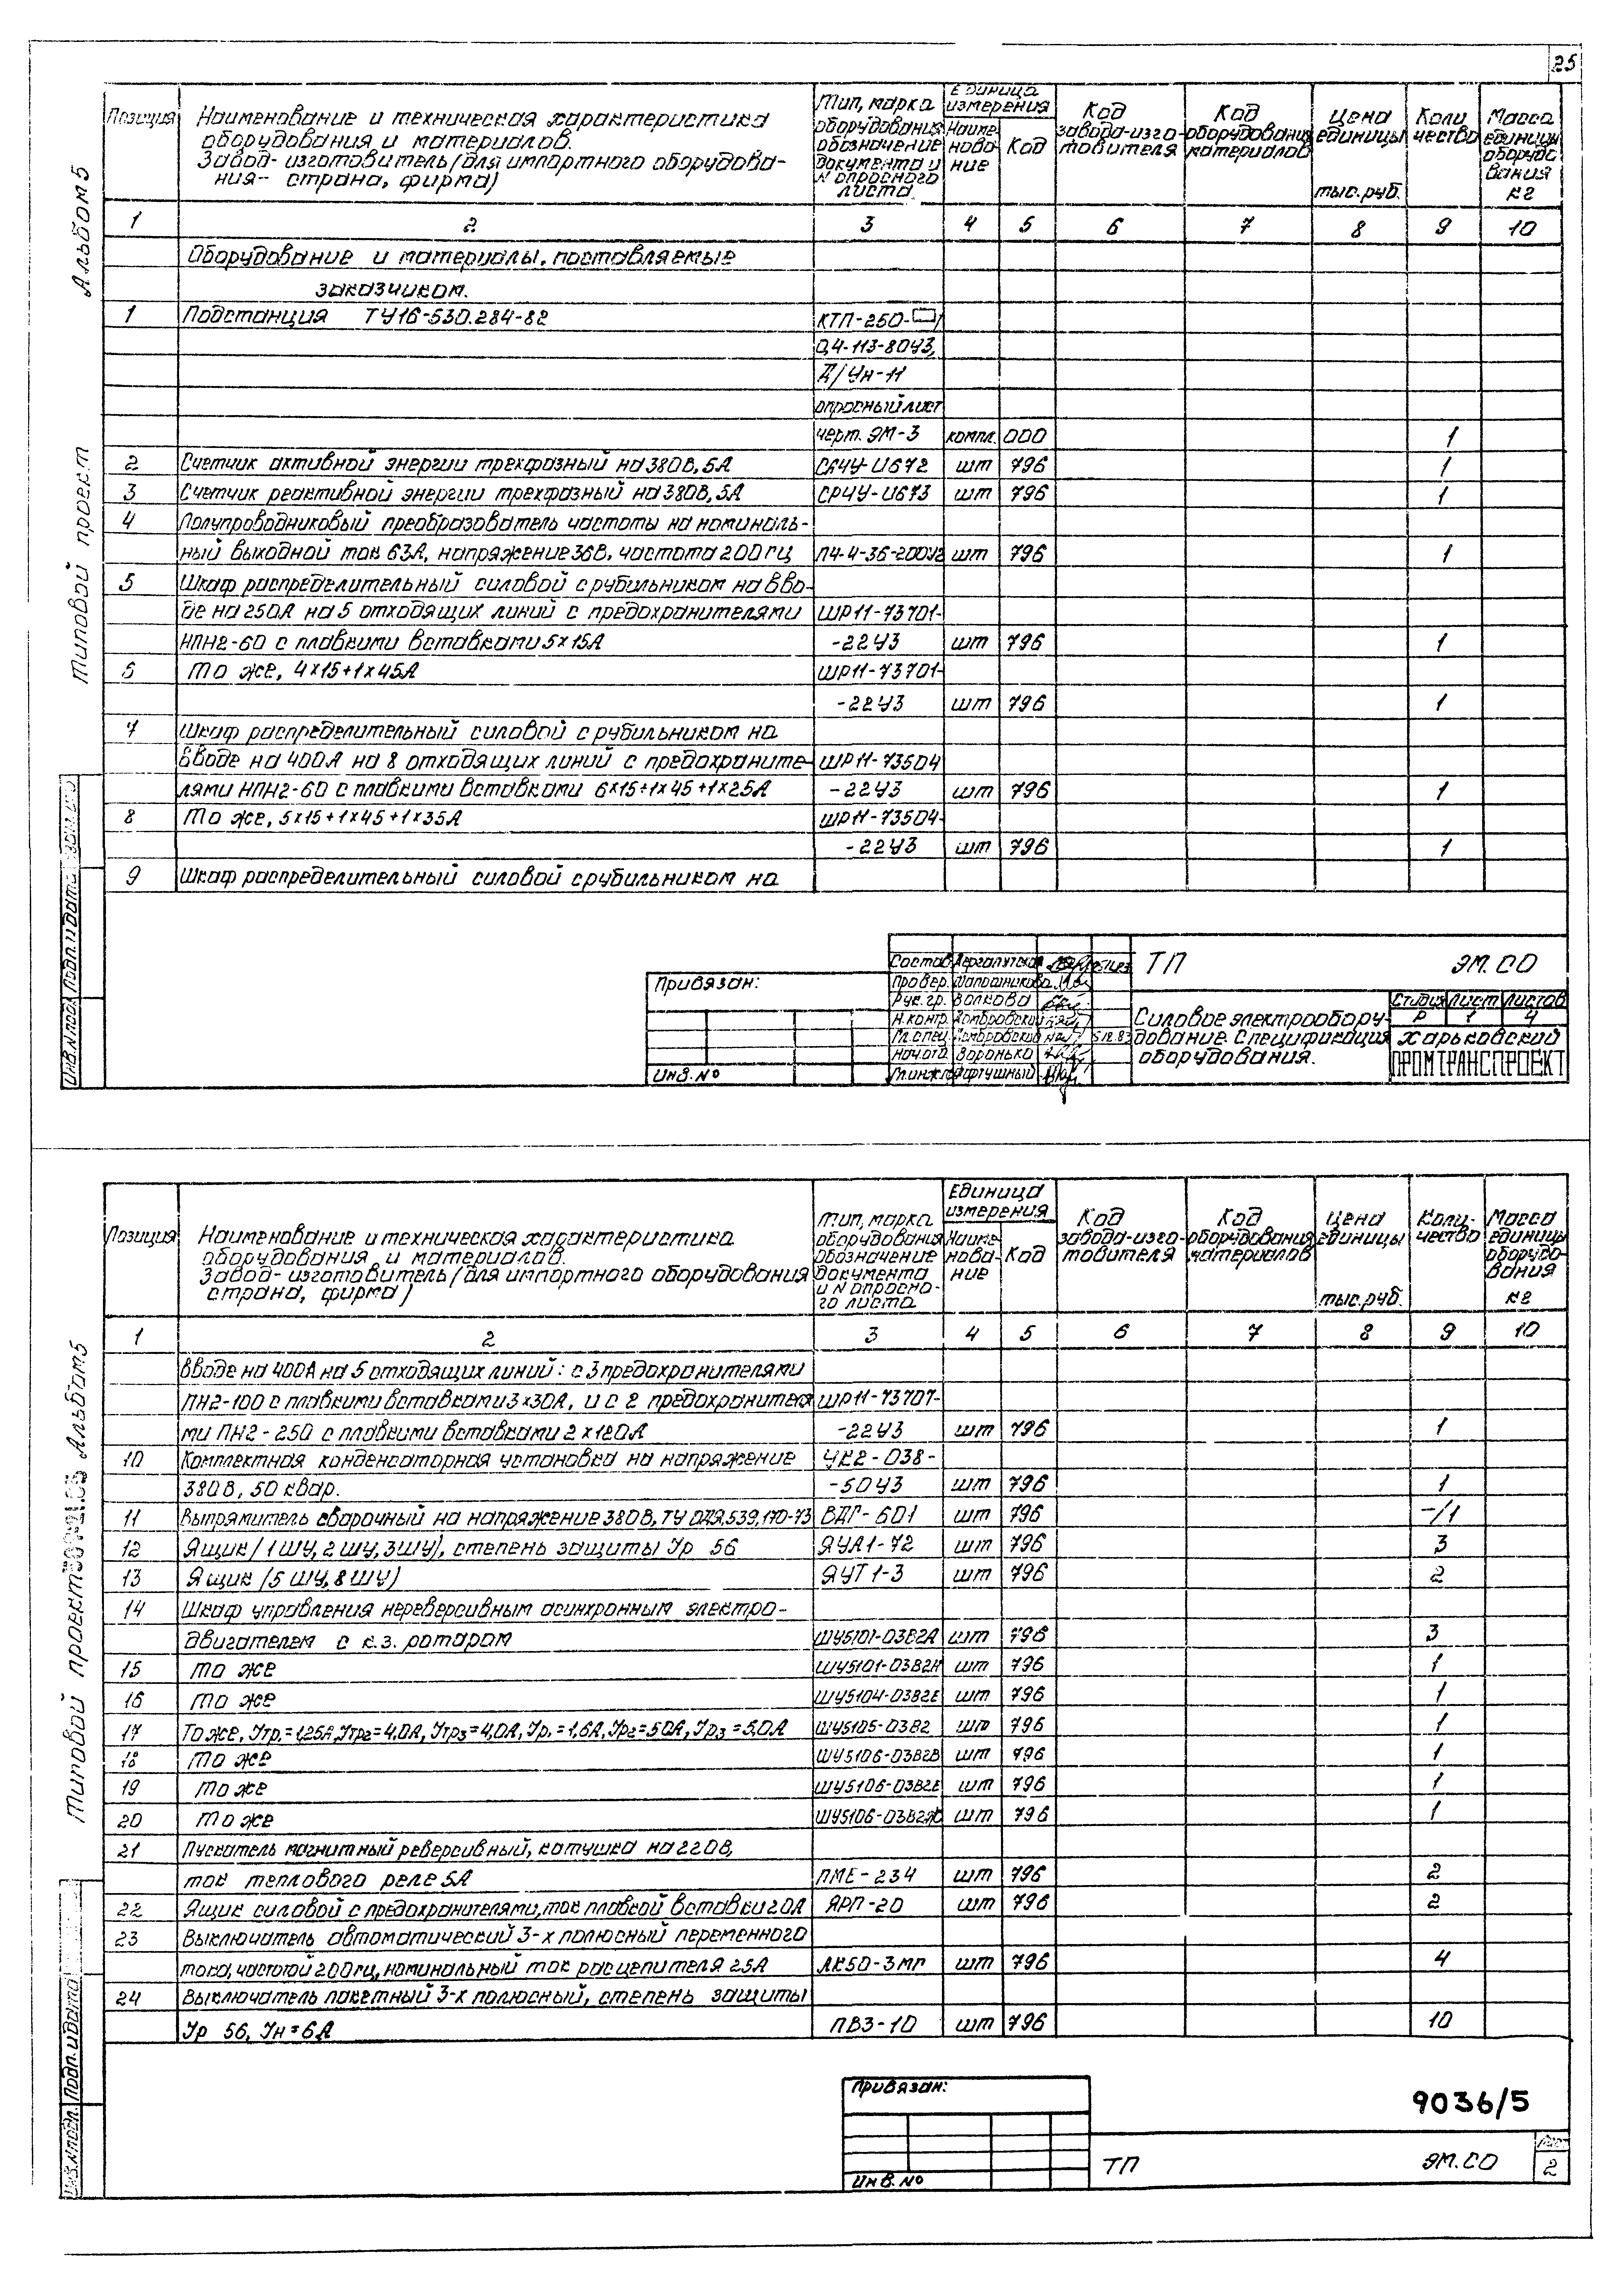 25
Альбом 5
Типовой проект
Позиция | Наименование и техническая характеристика оборудования и материалов. Завод-изготовитель (для импортного оборудования – страна, фирма) | Тип, марка оборудования, обозначение документа и N опросного листа. | Единица измерения | Наименование | Код | Код завода-изготовителя | Код оборудования, материалов | Цена единицы тыс.руб. | Количество | Масса единицы оборудования кг
1 | 2 | 3 | 4 | 5 | 6 | 7 | 8 | 9 | 10
Оборудование и материалы, поставляемые
заказчиком.
1 | Подстанция ТУ16-530.284-82 | КТП-250-□/
0,4-113-80У3,
Д/Ун-11
опросный лист
черт. ЭМ-3 | компл. | 000 | 1
2 | Счетчик активной энергии трехфазный на 380В, 5А | СА4У-И672 | шт | 796 | 1
3 | Счетчик реактивной энергии трехфазный на 380В, 5А | СР4У-И673 | шт | 796 | 1
4 | Полупроводниковый преобразователь частоты на номиналь-
ный выходной ток 63А, напряжение 36В, частота 200гц | ПЧ-4-36-200У2 | шт | 796 | 1
5 | Шкаф распределительный силовой с рубильником на вво-
де на 250А на 5 отходящих линий с предохранителями | ШР11-73701-
НПН2-60 с плавкими вставками 5х15А | -22У3 | шт | 796 | 1
6 | То же, 4х15+1х45А | ШР11-73701-
-22У3 | шт | 796 | 1
7 | Шкаф распределительный силовой с рубильником на
вводе на 400А на 8 отходящих линий с предохраните- | ШР11-73504
лями НПН2-60 с плавкими вставками 6х15+1х45+1х25А | -22У3 | шт | 796 | 1
8 | То же, 5х15+1х45+1х35А | ШР11-73504-
-22У3 | шт | 796 | 1
9 | Шкаф распределительный силовой с рубильником на
Привязан:
Инв.№
Состав.
Провер.
Рук. гр. Волкова
Н.контр.
Гл.спец.
Нач.отд. Воронько
Гл.инж.
5.12.83
ТП ЭМ.СО
Силовое электрообору-
дование. Спецификация
оборудования.
Стадия | Лист | Листов
Р | 1 | 4
Харьковский
ПРОМТРАНСПРОЕКТ
Инв.№подл. Подп. и дата
Типовой проект Альбом 5
Позиция | Наименование и техническая характеристика оборудования и материалов. Завод-изготовитель (для импортного оборудования страна, фирма) | Тип, марка оборудования Обозначение документа и N опросного листа | Единица измерения | Наименование | Код | Код завода-изготовителя | Код оборудования материалов | Цена единицы тыс.руб. | Количество | Масса единицы оборудования кг
1 | 2 | 3 | 4 | 5 | 6 | 7 | 8 | 9 | 10
вводе на 400А на 5 отходящих линий: с 3 предохранителями
ПН2-100 с плавкими вставками 3х30А, и с 2 предохранителя | ШР11-73707-
ми ПН2-250 с плавкими вставками 2х120А | -22У3 | шт | 796 | 1
10 | Комплектная конденсаторная установка на напряжение | УК2-038-
380В, 50 квар. | -50У3 | шт | 796 | 1
11 | Выпрямитель сварочный на напряжение 380В, ТУ ОДЯ.539.170-73 | ВДГ-601 | шт | 796 | -/1
12 | Ящик (1ШУ, 2ШУ, 3ШУ), степень защиты Ip 56 | ЯУА1-72 | шт | 796 | 3
13 | Ящик (5ШУ, 8ШУ) | ЯУТ1-3 | шт | 796 | 2
14 | Шкаф управления нереверсивным асинхронным электро-
двигателем с к.з. ротором | ШУ5101-03В2А | шт | 796 | 3
15 | То же | ШУ5101-03В2Н | шт | 796 | 1
16 | То же | ШУ5104-03В2Е | шт | 796 | 1
17 | То же, Iтр1=1,25А, Iтр2=4,0А, Iтр3=4,0А, Iр1=1,6А, Iр2=5,0А, Iр3=5,0А | ШУ5105-03В2 | шт | 796 | 1
18 | То же | ШУ5106-03В2В | шт | 796 | 1
19 | То же | ШУ5106-03В2Е | шт | 796 | 1
20 | То же | ШУ5106-03В2Ж | шт | 796 | 1
21 | Пускатель магнитный реверсивный, катушка на 220В,
ток теплового реле 5А | ПМЕ-234 | шт | 796 | 2
22 | Ящик силовой с предохранителями, ток плавкой вставки 20А | ЯРП-20 | шт | 796 | 2
23 | Выключатель автоматический 3-х полюсный переменного
тока, частотой 200гц, номинальный ток расцепителя 25А | АК50-3МГ | шт | 796 | 4
24 | Выключатель пакетный 3-х полюсный, степень защиты
Ip 56, Iн=6А | ПВ3-10 | шт | 796 | 10
Привязан:
Инв.№
9036/5
ТП ЭМ.СО
Лист
2
Инв.№подл. Подп. и дата